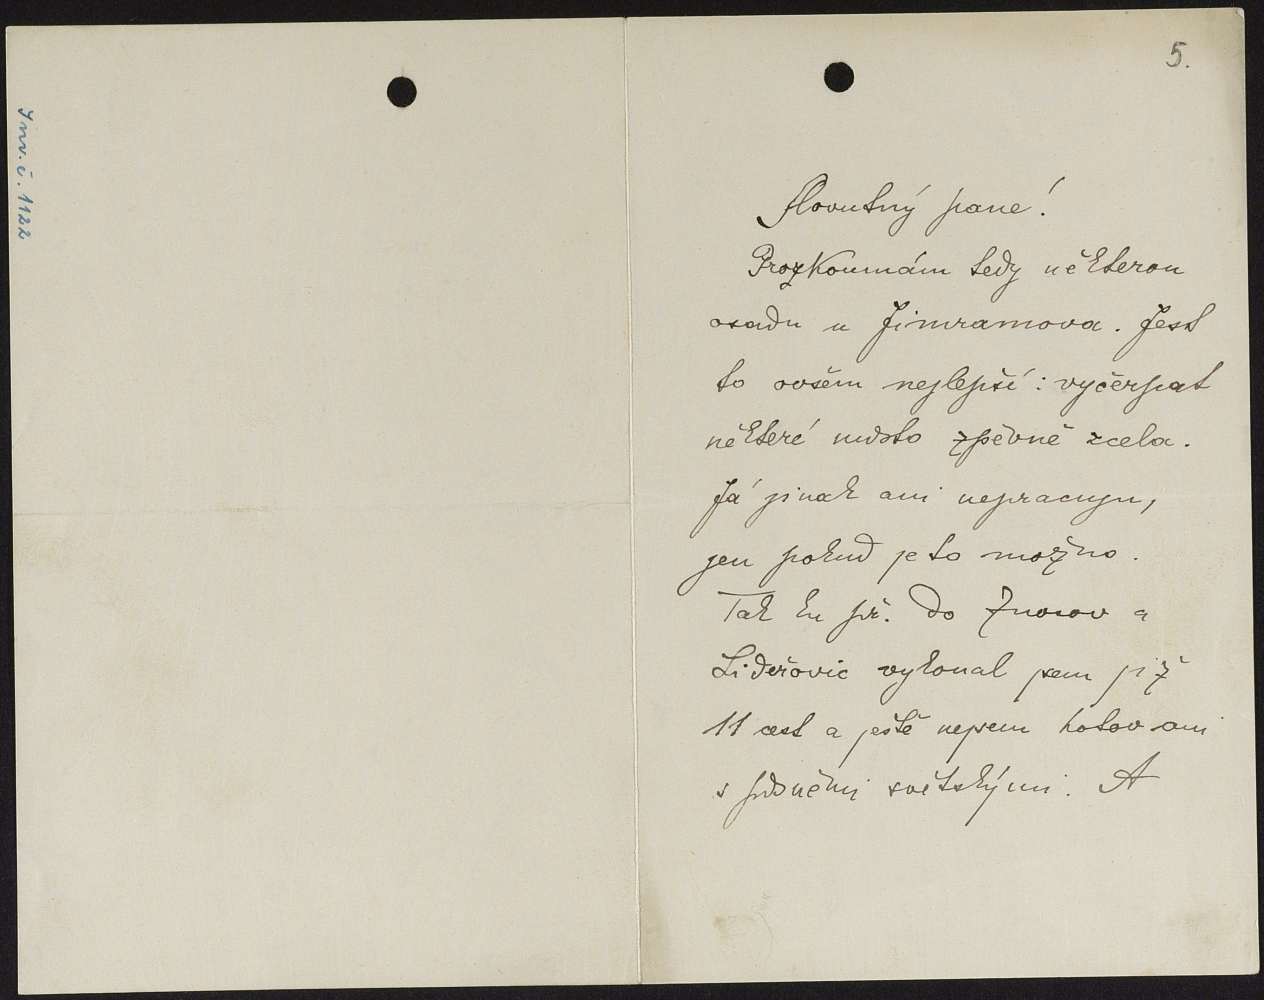 Inv. č. 1122
5.
Slovutný pane!
Prozkoumám tedy některou
osadu u Jimramova. Jest
to ovšem nejlepší: vyčerpat
některé místo zpěvně zcela.
Já jinak ani nepracuju,
jen pokud je to možno.
Tak ku př. do Žnorov a
Lideřovic vykonal jsem již
11 cest a ještě nejsem hotov ani
s písněmi světskými. A